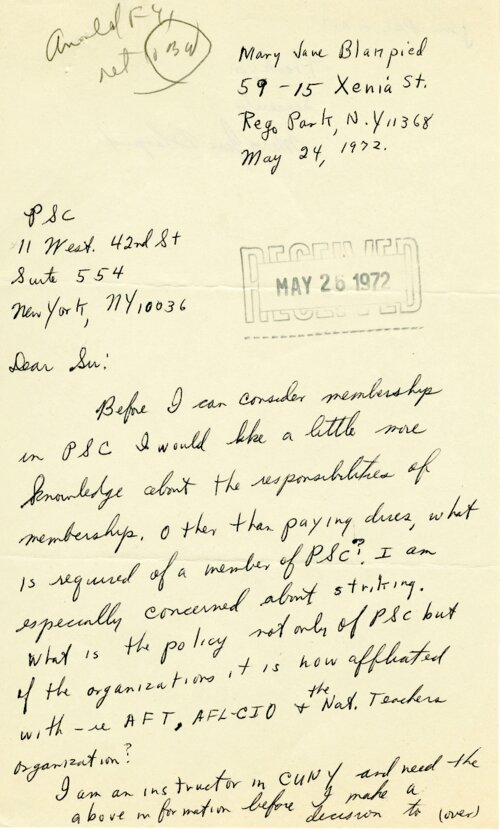 Arnold FYI
ret
Mary Jane Blampied
59-15 Xenia St.
Rego Park, N.Y 11368
May 24, 1972.
PSC
11 West. 42nd St
Suite 554
New York, NY 10036
RECEIVED
MAY 26 1972
RECEIVED
Dear Sir:
Before I can consider membership
in PSC I would like a little more
knowledge about the responsibilities of
membership. Other than paying dues, what
is required of a member of PSC? I am
especially concerned about striking.
What is the policy not only of PSC but
of the organizations it is now affliated
with - ie AFT, AFL-CIO + the Nat. Teachers
organization?
I am an instructor in CUNY and need the
above information before I make a
decision to (over)